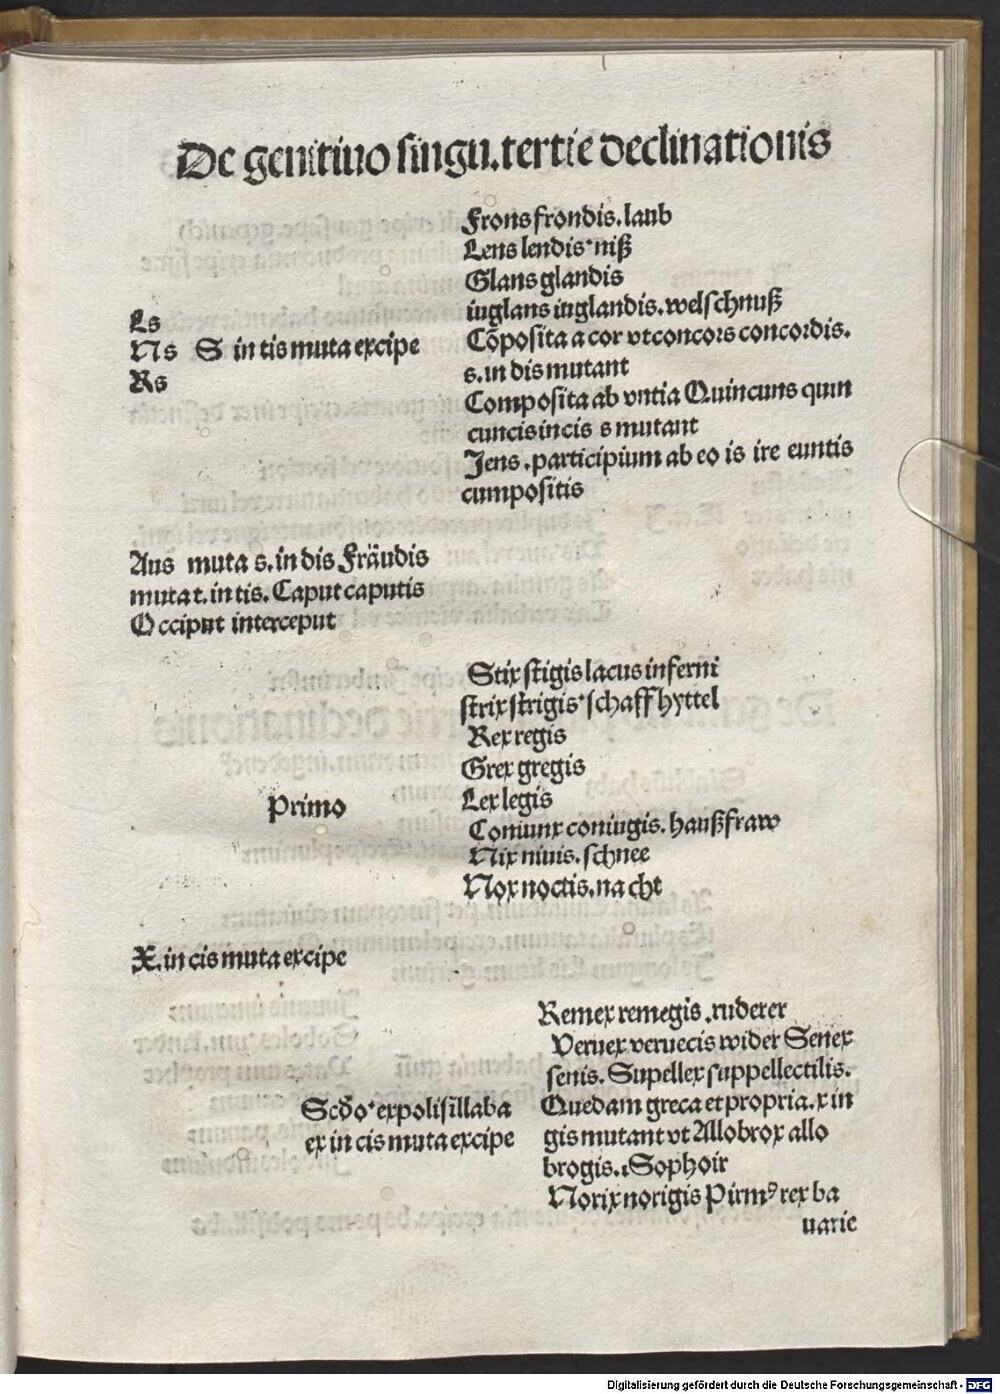 De genitiuo singu. tertie declinationis
Frons frondis. laub
Lens lendis· niß
Glans glandis
iuglans iuglandis. welschnuß
Ls
Ns S in tis muta excipe
Rs
Cōposita a cor vt concors concordis.
s. in dis mutant
Composita ab vntia Quincuns quin
cuncis in cis s mutant
Jens. participium ab eo is ire euntis
cumpositis
Aus muta s. in dis Fräudis
muta t. in tis. Caput caputis
Occiput interceput
Stix stigis lacus inferni
strix strigis· schaff hyttel
Rex regis
Grex gregis
Primo
Lex legis
Coniunx coniugis. haußfraw
Nix niuis. schnee
Nox noctis. nacht
X. in cis muta excipe
Remex remegis. ruderer
Veruex veruecis wider Senex
senis. Supellex suppellectilis.
Scd̄o· ex polisillaba
ex in cis muta excipe
Quedam greca et propria. x in
gis mutant vt Allobrox allo
brogis. Sophoir
Norix norigis Pirmꝰ rex ba
uarie
Digitalisierung gefördert durch die Deutsche Forschungsgemeinschaft - DFG